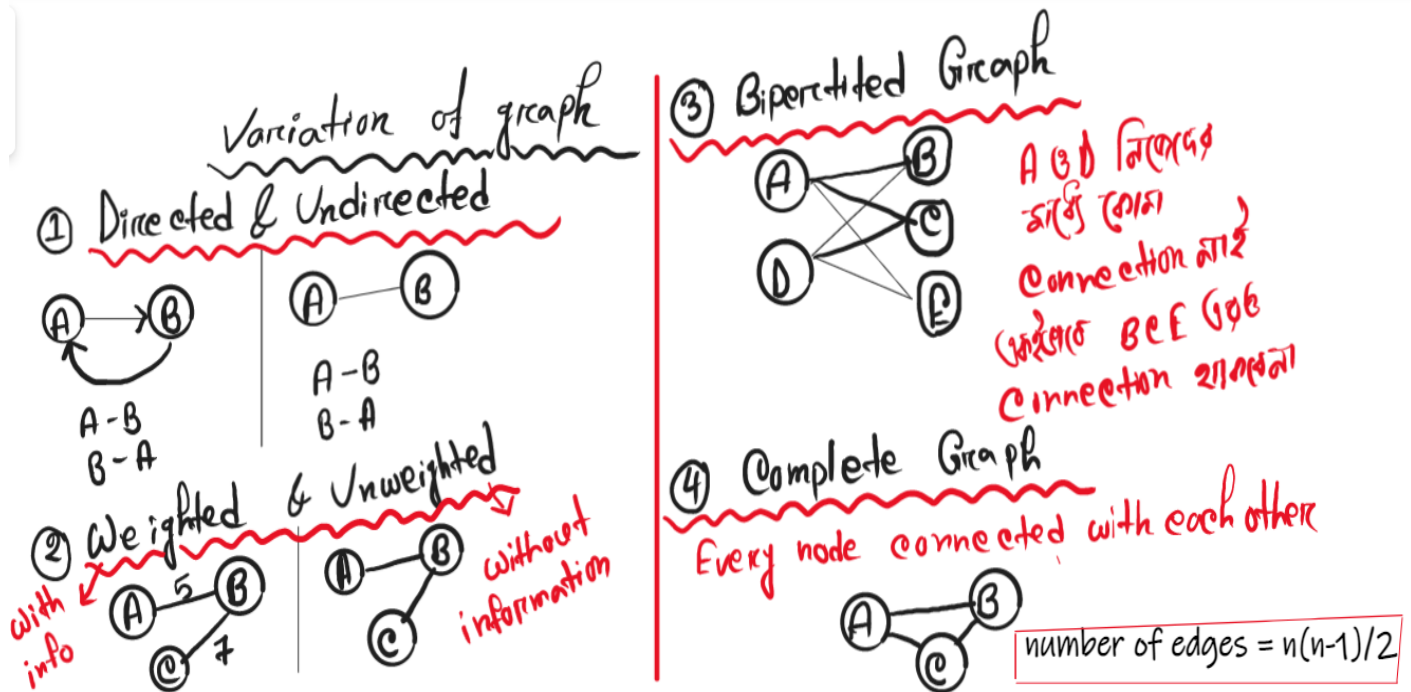 Variation of graph
① Directed & Undirected
A
B
A
B
A-B
B-A
A-B
B-A
② Weighted & Unweighted
with
info
A
5
B
C
7
A
B
C
without
information
③ Bipertited Graph
A
B
C
D
E
A ও D নিজেদের
মধ্যে কোনো
Connection নাই
একইভাবে BCE
Connection থাকবেনা
④ Complete Graph
Every node connected with each other
A
B
C
number of edges = n(n-1)/2